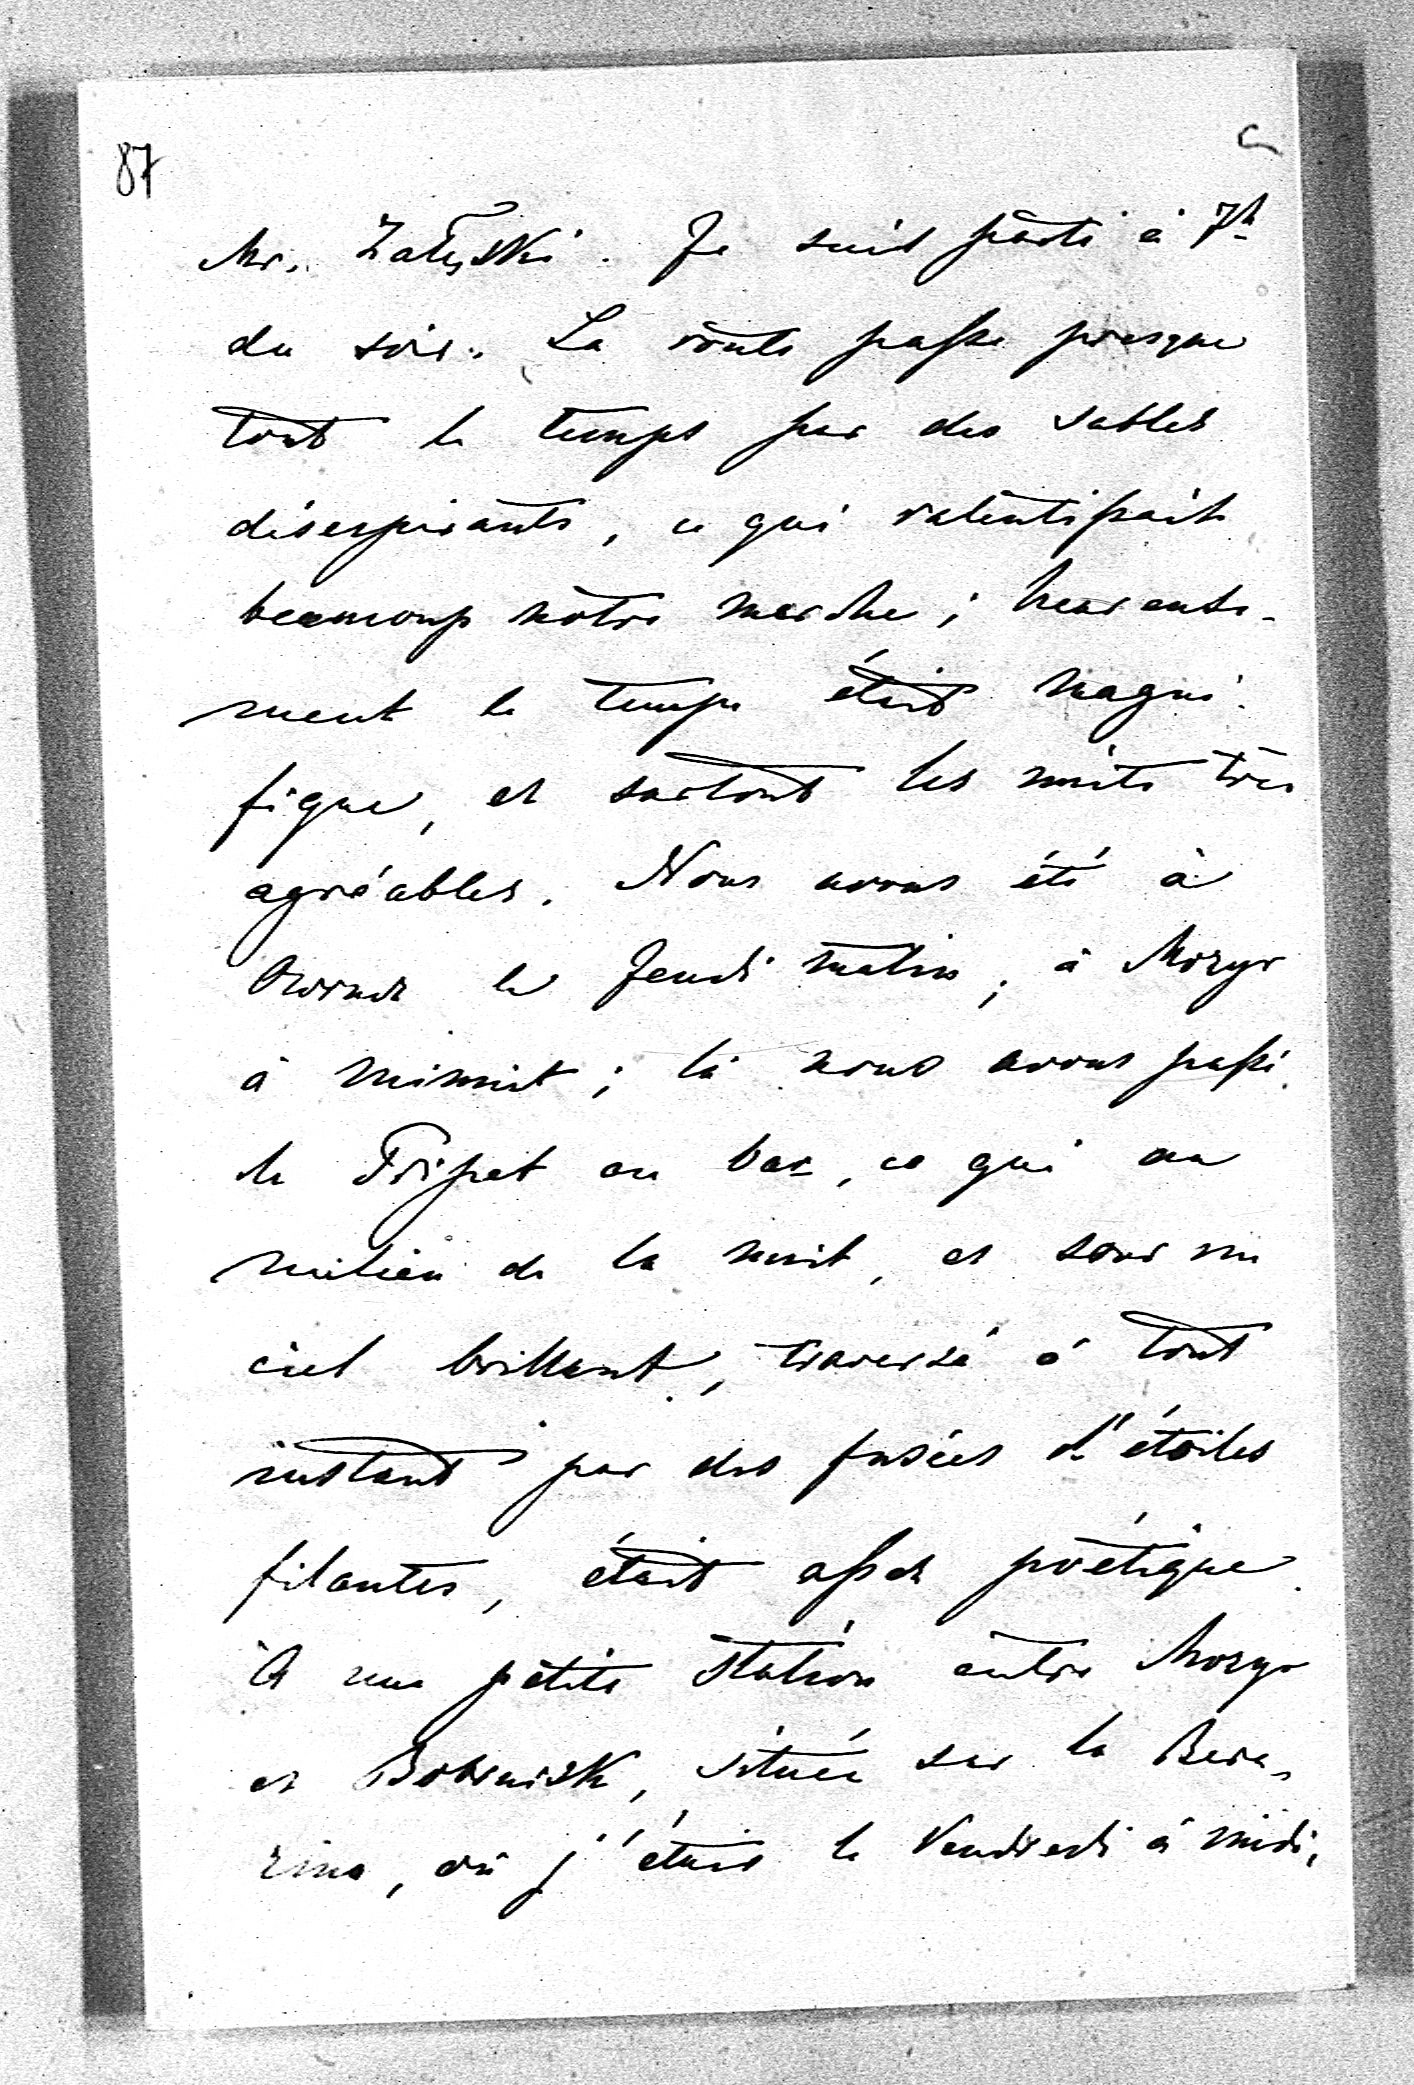 87
Mr. Załęski. Je suis parti à 7h
du soir. La route passe presque
tout le temps par des sables
désespérants, ce qui ralentissait
beaucoup nôtre marche; heureuse-
ment le temps était magni-
fique, et surtout les nuits très
agréables. Nous avons été à
Owrucz le Jeudi matin; à Mozyr
à minuit; là nous avons passé
le Pripet en bac, ce qui au
milieu de la nuit, et sous un
ciel brillant, traversé à tout
instant par des fusées d'étoiles
filantes, était assez poëtique.
À une petite station entre Mozyr
et Bobruisk, située sur la Bere-
zina, où j'étais le Vendredi à midi,